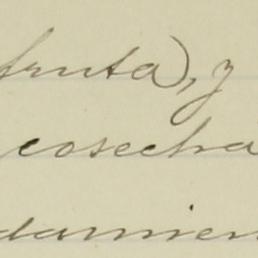 fruta), y
cosecha
damien